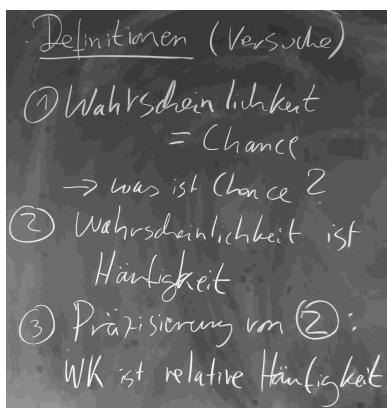 Definitionen (Versuche)
① Wahrscheinlichkeit
= Chance
→ was ist Chance?
② Wahrscheinlichkeit ist
Häufigkeit
③ Präzisierung von ②:
WK ist relative Häufigkeit